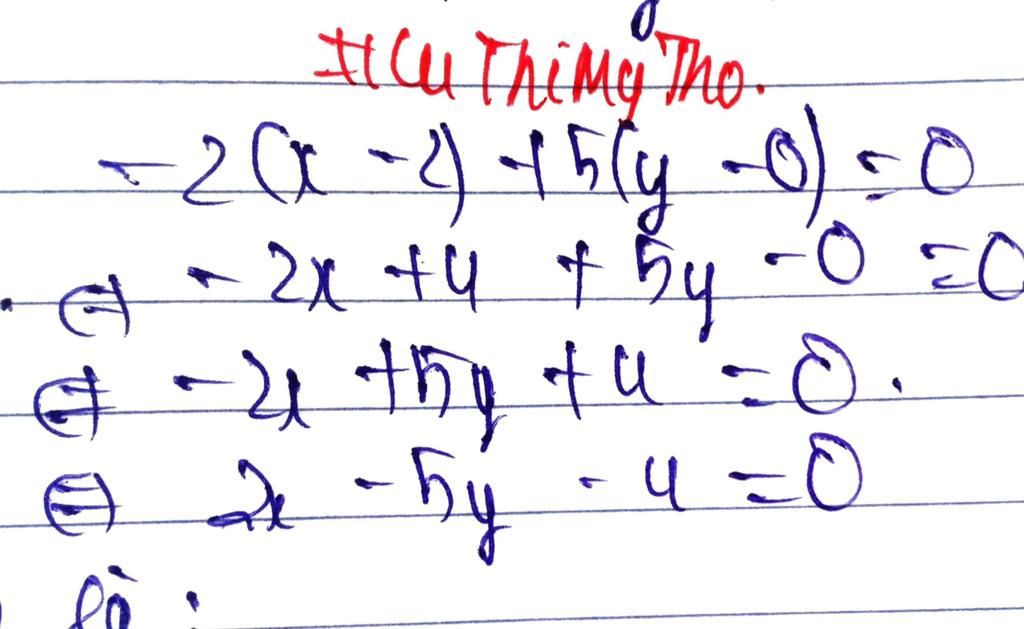 #Cu Thi Mỹ Tho.
-2(x - 2) + 5(y - 0) = 0
⇔ - 2x + 4 + 5y - 0 = 0
⇔ - 2x + 5y + 4 = 0.
⇔ 2x - 5y - 4 = 0